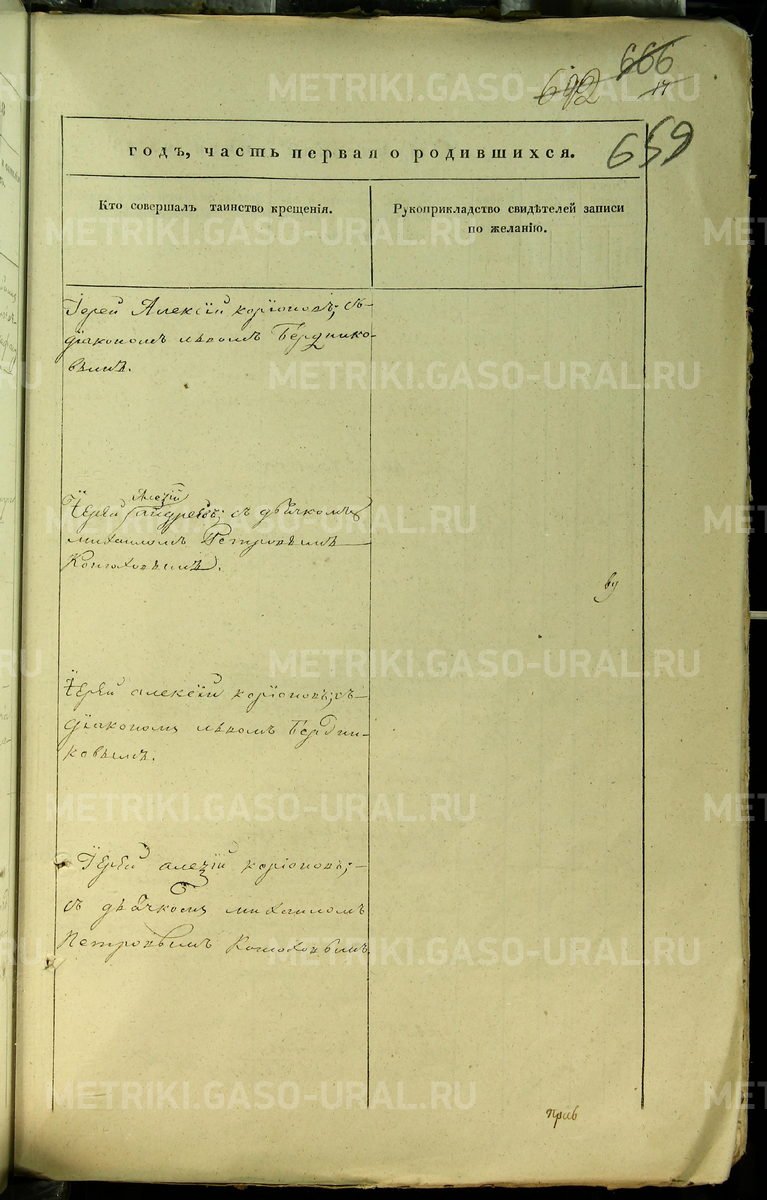 666
692
17
659
годъ, часть первая о родившихся.
Кто совершалъ таинство крещенія.
Рукоприкладство свидѣтелей записи
по желанію.
Іерей Алексій коріоновъ; съ
діакономъ львомъ Бердико-
вымъ.
Алезій
Іерей андреевъ; съ дьячкомъ
михаиломъ Петровымъ
Конюховымъ.
ву
Іерей алексій коріоновъ; съ
діакономъ львомъ Бердни-
ковымъ.
Іерей алезій коріоновъ;
съ дьячкомъ михаиломъ
Петровымъ Конюховымъ.
прив
METRIKI.GASO-URAL.RU